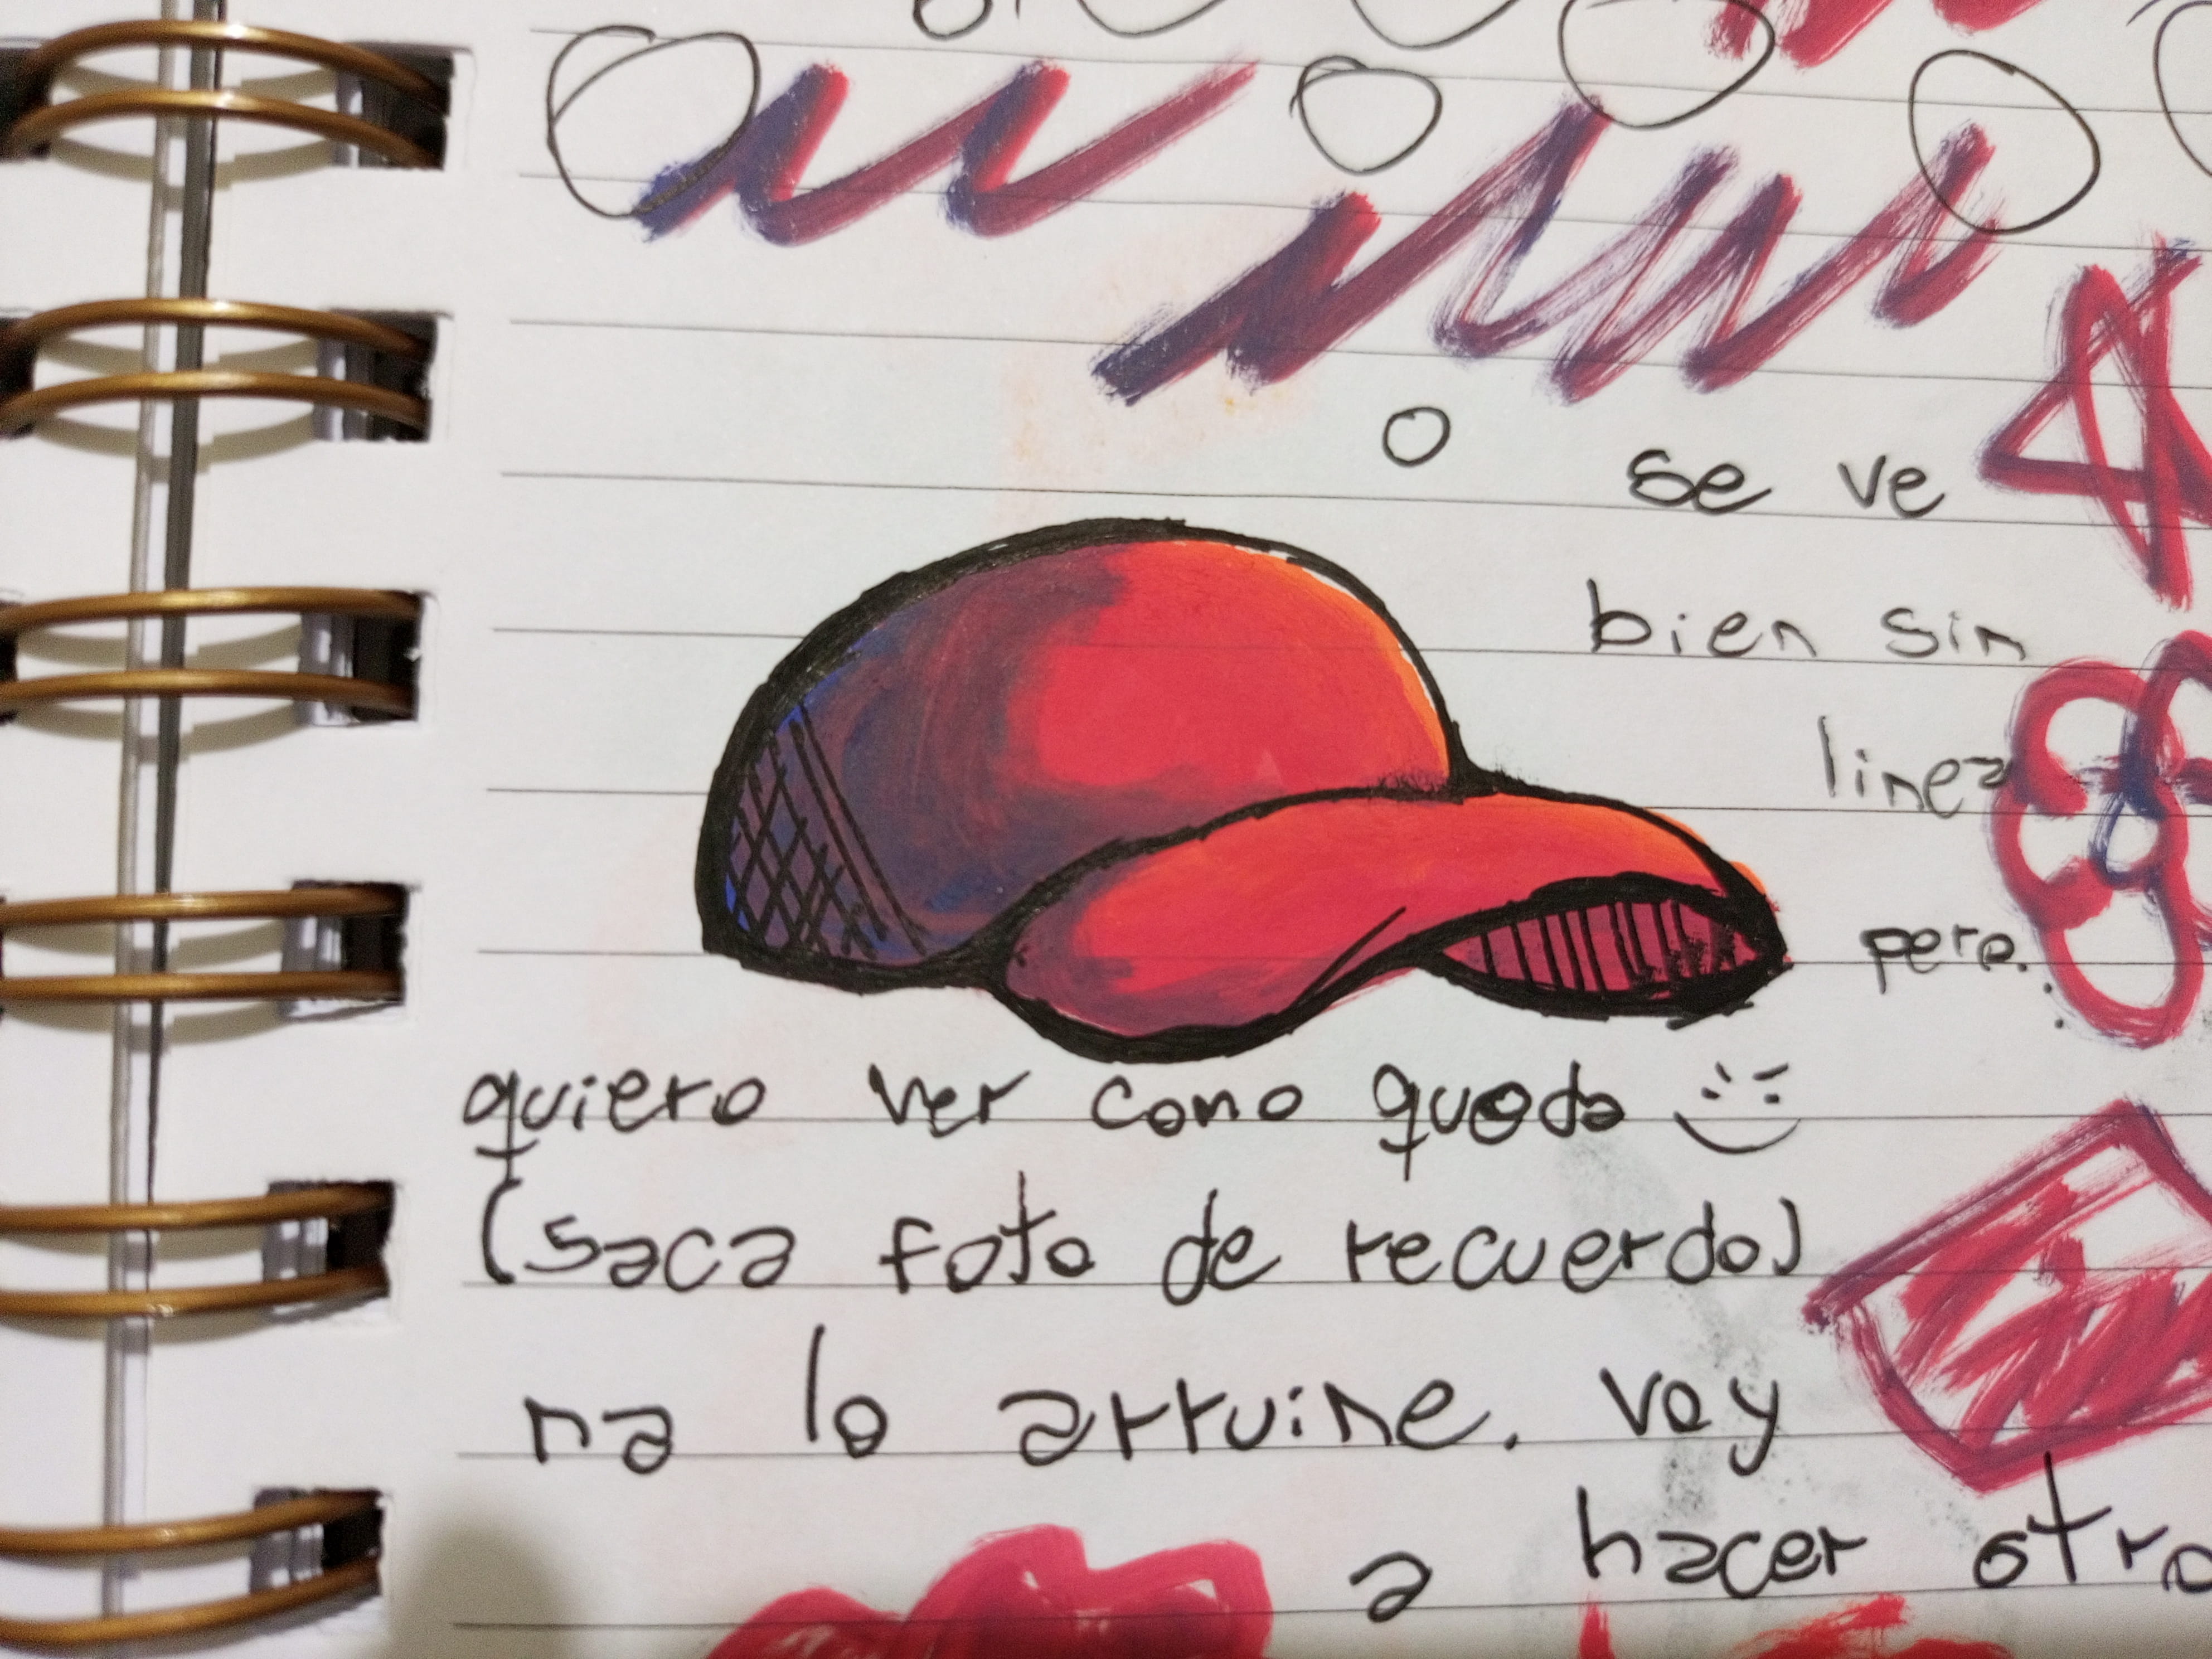 se ve
bien sin
linea
pero...
quiero ver como queda
(saca foto de recuerdo)
na lo arruine. voy
a hacer otro